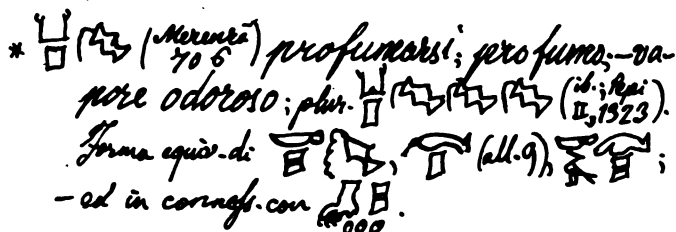 * (Merenrâ 706) profumarsi; profumo; – va-
pore odoroso; plur. (ib.; Pepi II, 1323).
Forma equiv. di , (all. 9), ;
– ed in conness. con .